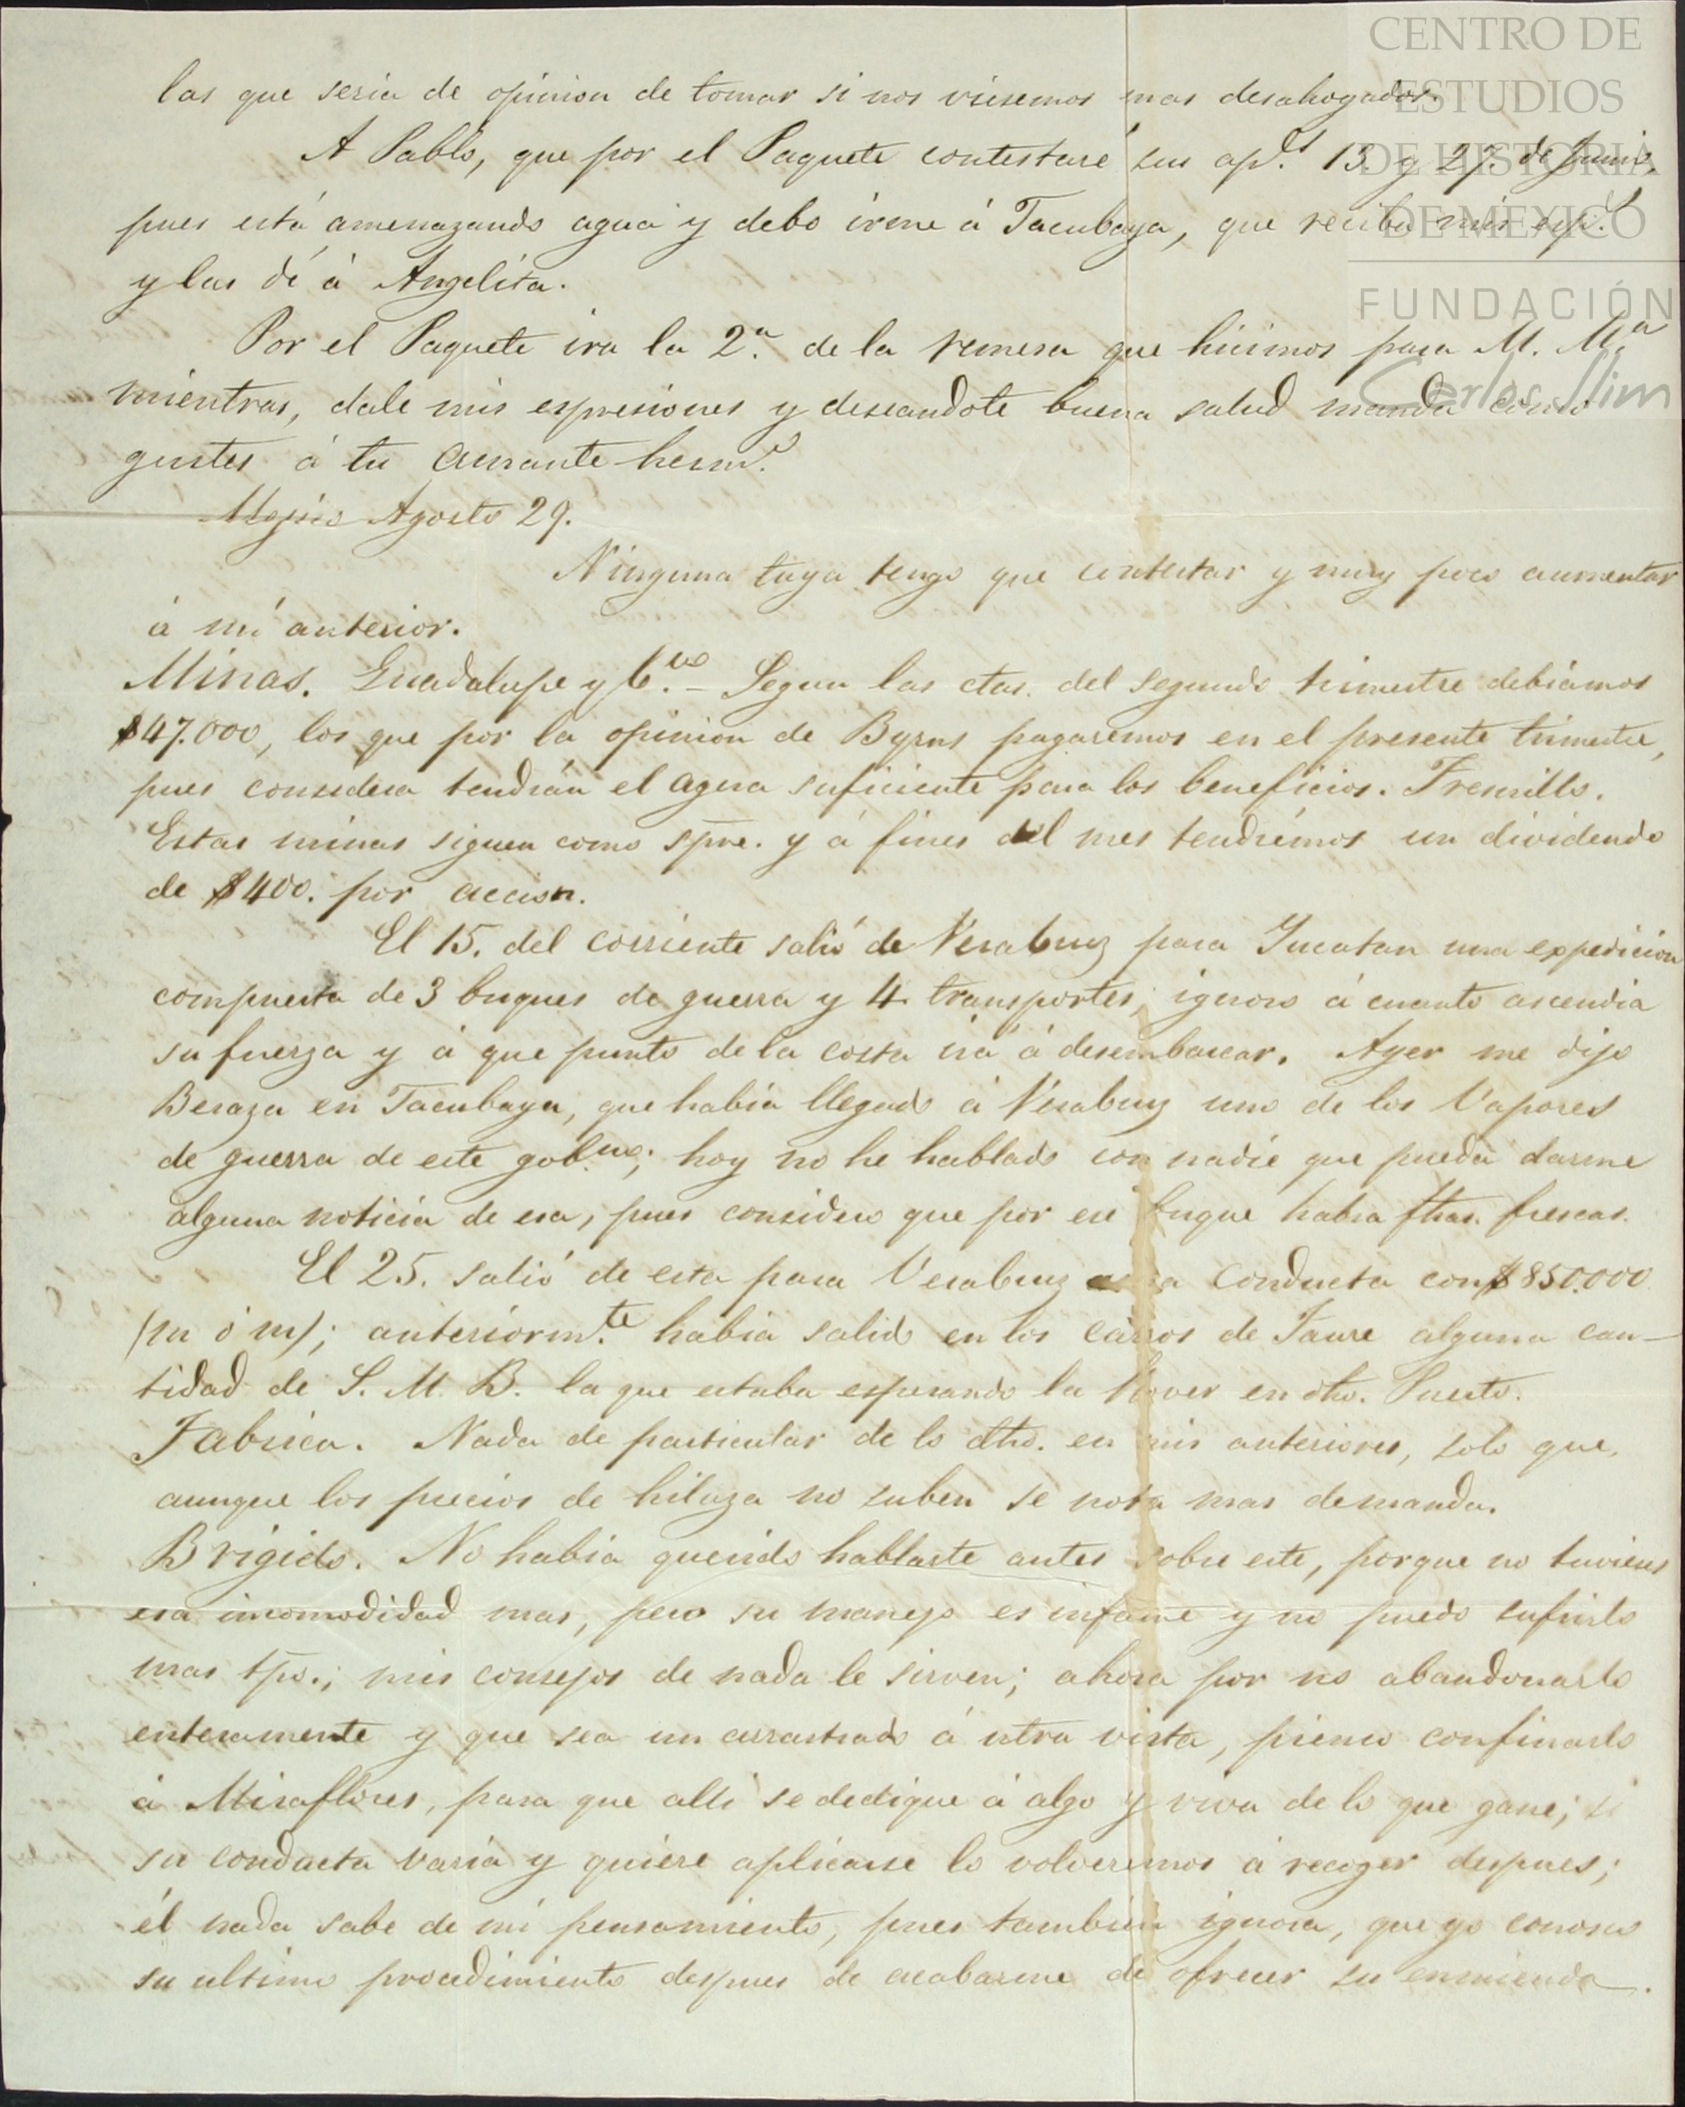 CENTRO DE
ESTUDIOS
DE HISTORIA
DE MEXICO
FUNDACIÓN
Carlos Slim
las que seria de opinion de tomar si nos viesemos mas desahogados.
A Pablo, que por el Paquete contestaré sus ap.s 13 y 27. de Junio,
pues está amenazando agua y debo irme á Tacubaya, que reciba mis esp.s
y las dé á Angelita.
Por el Paquete ira la 2.a de la remesa que hicimos para M. M.a
mientras, dale mis espresiones y deseandote buena salud manda como
gustes á tu amante herm.o
Mejico Agosto 29.
Ninguna tuya tengo que contestar y muy poco aumentar
á mi anterior.
Minas. Guadalupe y C.os – Segun las ctas. del segundo trimestre debiámos
$47.000, los que por la opinion de Byrns pagaremos en el presente trimestre,
pues considera tendrán el agua suficiente para los beneficios. Fresnillo.
Estas minas siguen como spre. y á fines del mes tendrémos un dividendo
de $400. por accion.
El 15. del corriente salió de Verabruz para Yucatan una expedicion
compuesta de 3 buques de guerra y 4 transportes; ignoro á cuanto ascendia
su fuerza y á que punto de la costa irá á desembarcar. Ayer me dijo
Beraza en Tacubaya, que habia llegado á Verabruz uno de los Vapores
de guerra de este gob.no; hoy no he hablado con nadie que pueda darme
alguna noticia de esa, pues considero que por ese buque habra fhas. frescas.
El 25. salió de esta para Verabruz la conducta con $850.000
(m ó m); anteriorm.te habia salido en los carros de Faure alguna can-
tidad de S. M. B. la que estaba esperando la Hover en dho. Puerto.
Fabrica. Nada de particular de lo dho. en mis anteriores, solo que,
aunque los precios de hilaza no suben se nota mas demanda.
Brigido. No habia querido hablarte antes sobre este, porque no tuvieses
esa incomodidad mas, pero su manejo es infame y no puedo sufrirlo
mas tpo.; mis consejos de nada le sirven; ahora por no abandonarlo
enteramente y que sea un arrastrado á ntra vista, pienso confinarlo
á Miraflores, para que alli se dedique á algo y viva de lo que gane; si
su conducta varia y quiere aplicarse lo volveremos á recoger despues;
él nada sabe de mi pensamiento, pues tambien ignora, que yo conosco
su ultimo procedimiento despues de acabarme de ofrecer su enmienda.